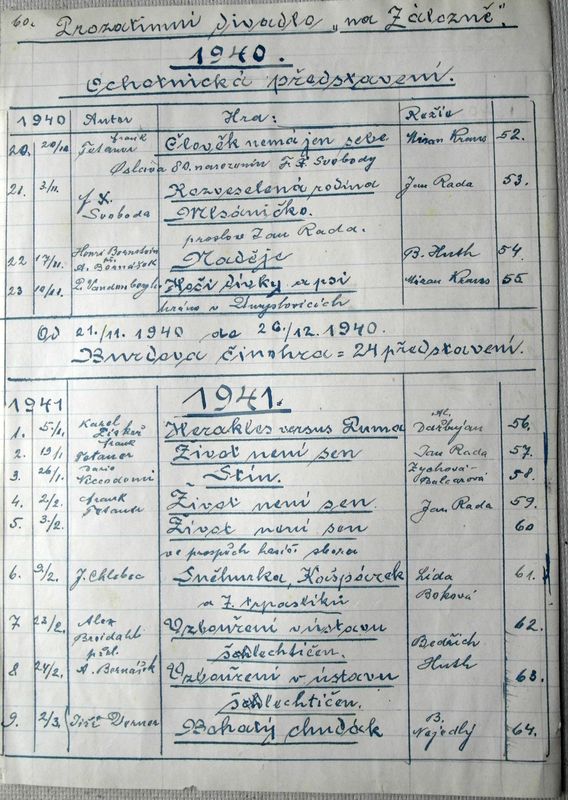 60. Prozatimní divadlo „na Záložně".
1940.
Ochotnická představení.
1940 Autor Hra: Režie
20. 20/10. Frank Tetauer Člověk nemá jen sebe Miran Kraus 52.
Oslava 80. narozenin F. X. Svobody
21. 3/11. f. X. Svoboda Rozveselená rodina Jan Rada 53.
Mlsáníčko.
proslov Jan Rada.
22 17/11. Henri Bernstein Naděje B. Huth 54.
př. A. Bernášek
23 19/11. Hoši dívky a psi Miran Kraus 55.
hráno v
Od 21./11. 1940 do 26./12. 1940.
Burdova činohra = 24 představení.
1941 1941.
1. 5/1. Karel Herakles versus Puma Al. Darbujan 56.
2. 19/1 Frank Tetauer Život není sen Jan Rada 57.
3. 26/1. Dario Niccodemi Stín. Zychová 58.
4. 2/2. Frank Tetauer Život není sen Jan Rada 59.
5. 3/2. Život není sen 60
ve prospěch hasič. sboru
6. 9/2. J. Chlebec Sněhurka, Kašpárek Lída Boková 61.
a 7. trpaslíků
7 23/2. Alex Breidahl Vzbouření v ústavu 62.
šlechtičen. Bedřich Huth
8 24/2. přel. A. Bernášek Vzbouření v ústavu 63.
šlechtičen.
9. 2/3. Jiří Verner Bohatý chudák B. Nejedlý 64.